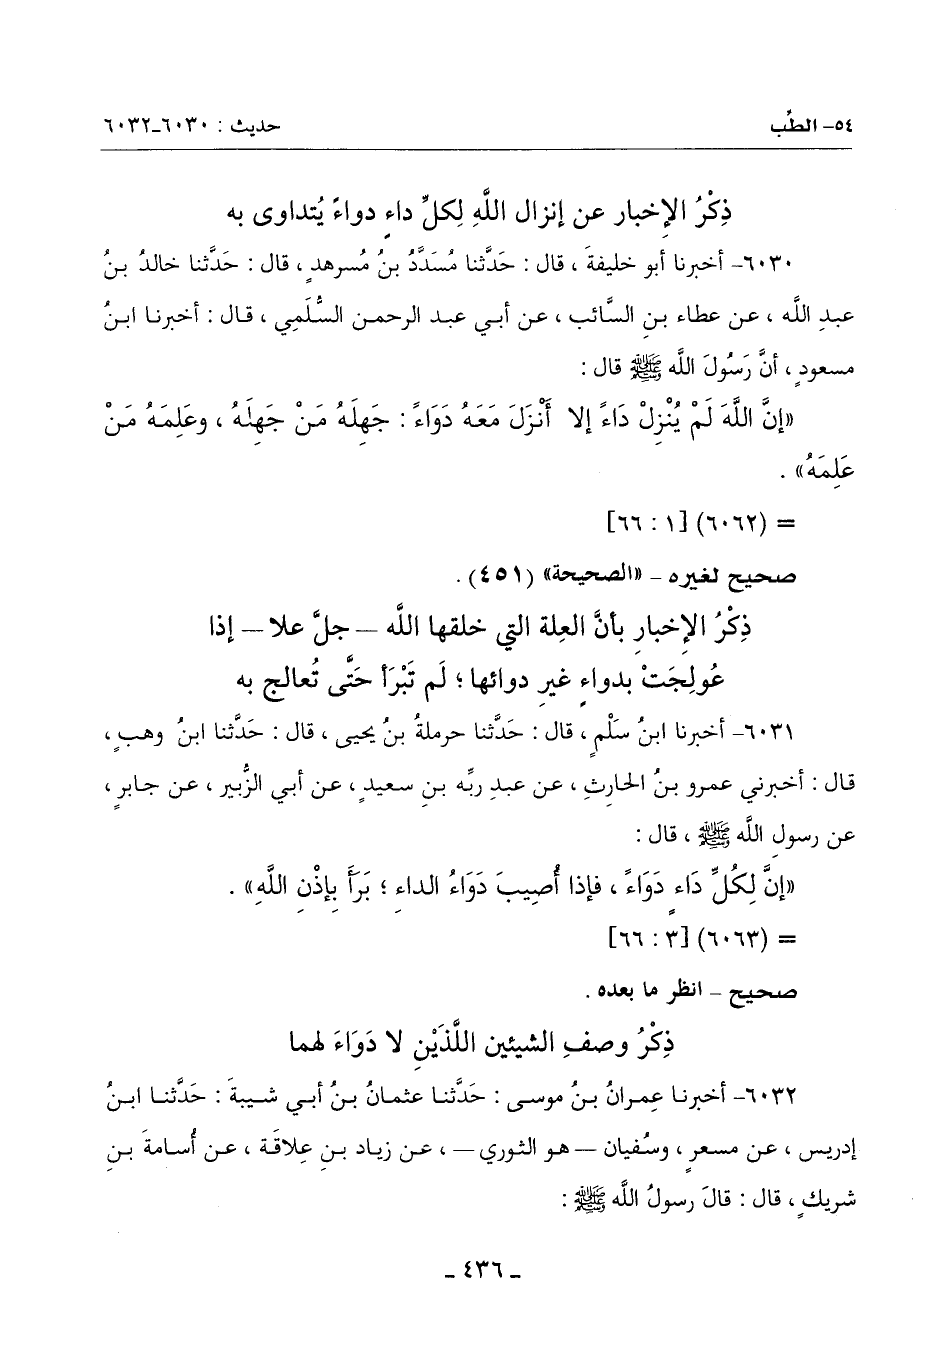 ٥٤- الطِّب حديث : ٦٠٣٠-٦٠٣٢
ذِكْرُ الإِخبار عن إنزال اللَّهِ لِكلِّ داءٍ دواءً يُتداوى به
٦٠٣٠- أخبرنا أبو خليفةَ ، قال : حَدَّثنا مُسَدَّدُ بنُ مُسرهدٍ ، قال : حَدَّثنا خالدُ بنُ
عبدِ اللَّه ، عن عطاء بنِ السَّائب ، عن أبي عبد الرحمن السُّلَمِي ، قال : أخبرنا ابنُ
مسعودٍ ، أنَّ رَسُولَ اللَّه ﷺ قال :
«إنَّ اللَّهَ لَمْ يُنْزِلْ دَاءً إلا أَنْزَلَ مَعَهُ دَوَاءً : جَهِلَهُ مَنْ جَهِلَهُ ، وعَلِمَهُ مَنْ
عَلِمَهُ» .
= (٦٠٦٢) [١ : ٦٦]
صحيح لغيره - «الصحيحة» (٤٥١) .
ذِكْرُ الإِخبارِ بأنَّ العِلة التي خلقها اللَّه – جلَّ علا – إذا
عُولِجَتْ بدواءٍ غيرِ دوائها ؛ لَم تَبْرَأ حَتَّى تُعالج به
٦٠٣١- أخبرنا ابنُ سَلْمٍ ، قال : حَدَّثنا حرملةُ بنُ يحيى ، قال : حَدَّثنا ابنُ وهبٍ ،
قال : أخبرني عمرو بنُ الحارثِ ، عن عبدِ ربِّه بنِ سعيدٍ ، عن أبي الزُّبير ، عن جابرٍ ،
عن رسولِ اللَّه ﷺ ، قال :
«إنَّ لِكُلِّ دَاءٍ دَوَاءً ، فإذا أُصِيبَ دَوَاءُ الداءِ ؛ بَرَأَ بإِذْنِ اللَّهِ» .
= (٦٠٦٣) [٣ : ٦٦]
صحيح - انظر ما بعده .
ذِكْرُ وصفِ الشيئين اللَّذَيْنِ لا دَوَاءَ لهما
٦٠٣٢- أخبرنا عِمرانُ بنُ موسى : حَدَّثنا عثمانُ بنُ أبي شيبةَ : حَدَّثنا ابنُ
إدريس ، عن مسعرٍ ، وسُفيان – هو الثوري – ، عن زياد بنِ عِلاقَة ، عن أُسامةَ بنِ
شريكٍ ، قال : قالَ رسولُ اللَّه ﷺ :
- ٤٣٦ -